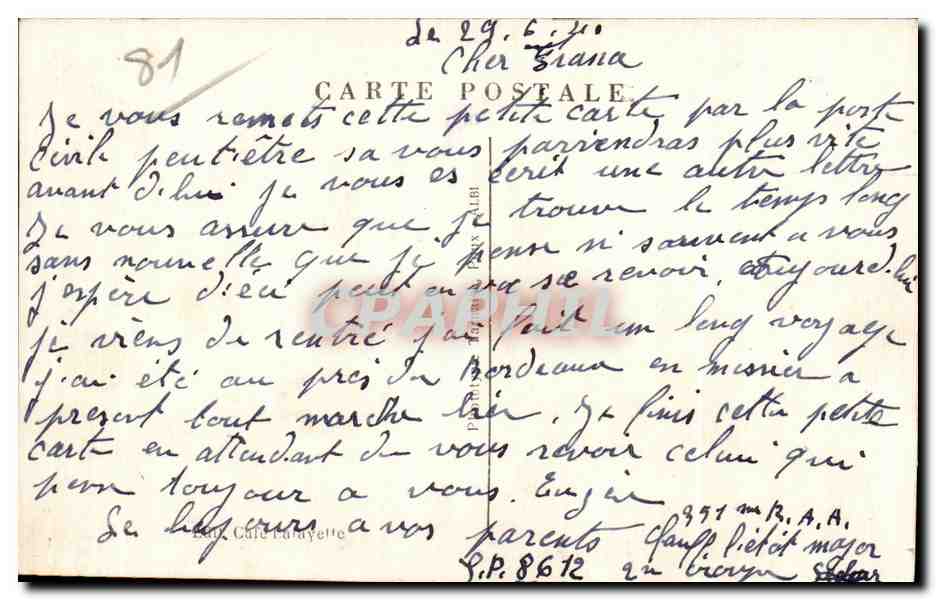 81
Le 29.6.40
Cher
CARTE POSTALE
Je vous remets cette petite carte par la poste
Civile peut-être sa vous parviendras plus vite
avant d'hui je vous es écrit une autre lettre
Je vous assure que je trouve le temps long
sans nouvelle que je pense si souvent a vous
j'espère d'ici peut on se revoir. Aujourd'hui
je viens de rentré j'ai fait un long voyage
j'ai été au près de Bordeaux en mission a
présent tout marche bien. Je finis cette petite
carte en attendant de vous revoir celui qui
pense toujour a vous. Eugène
bonjours a vos parents
Edit. Café Lafayette
ALBI
351 me R.A.A.
major
S.P. 8612
CPAPHIL